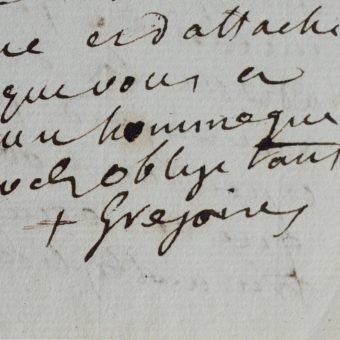 ue et d'attache
que vous a
un homme que
vous oblige tant
+ Gregoire